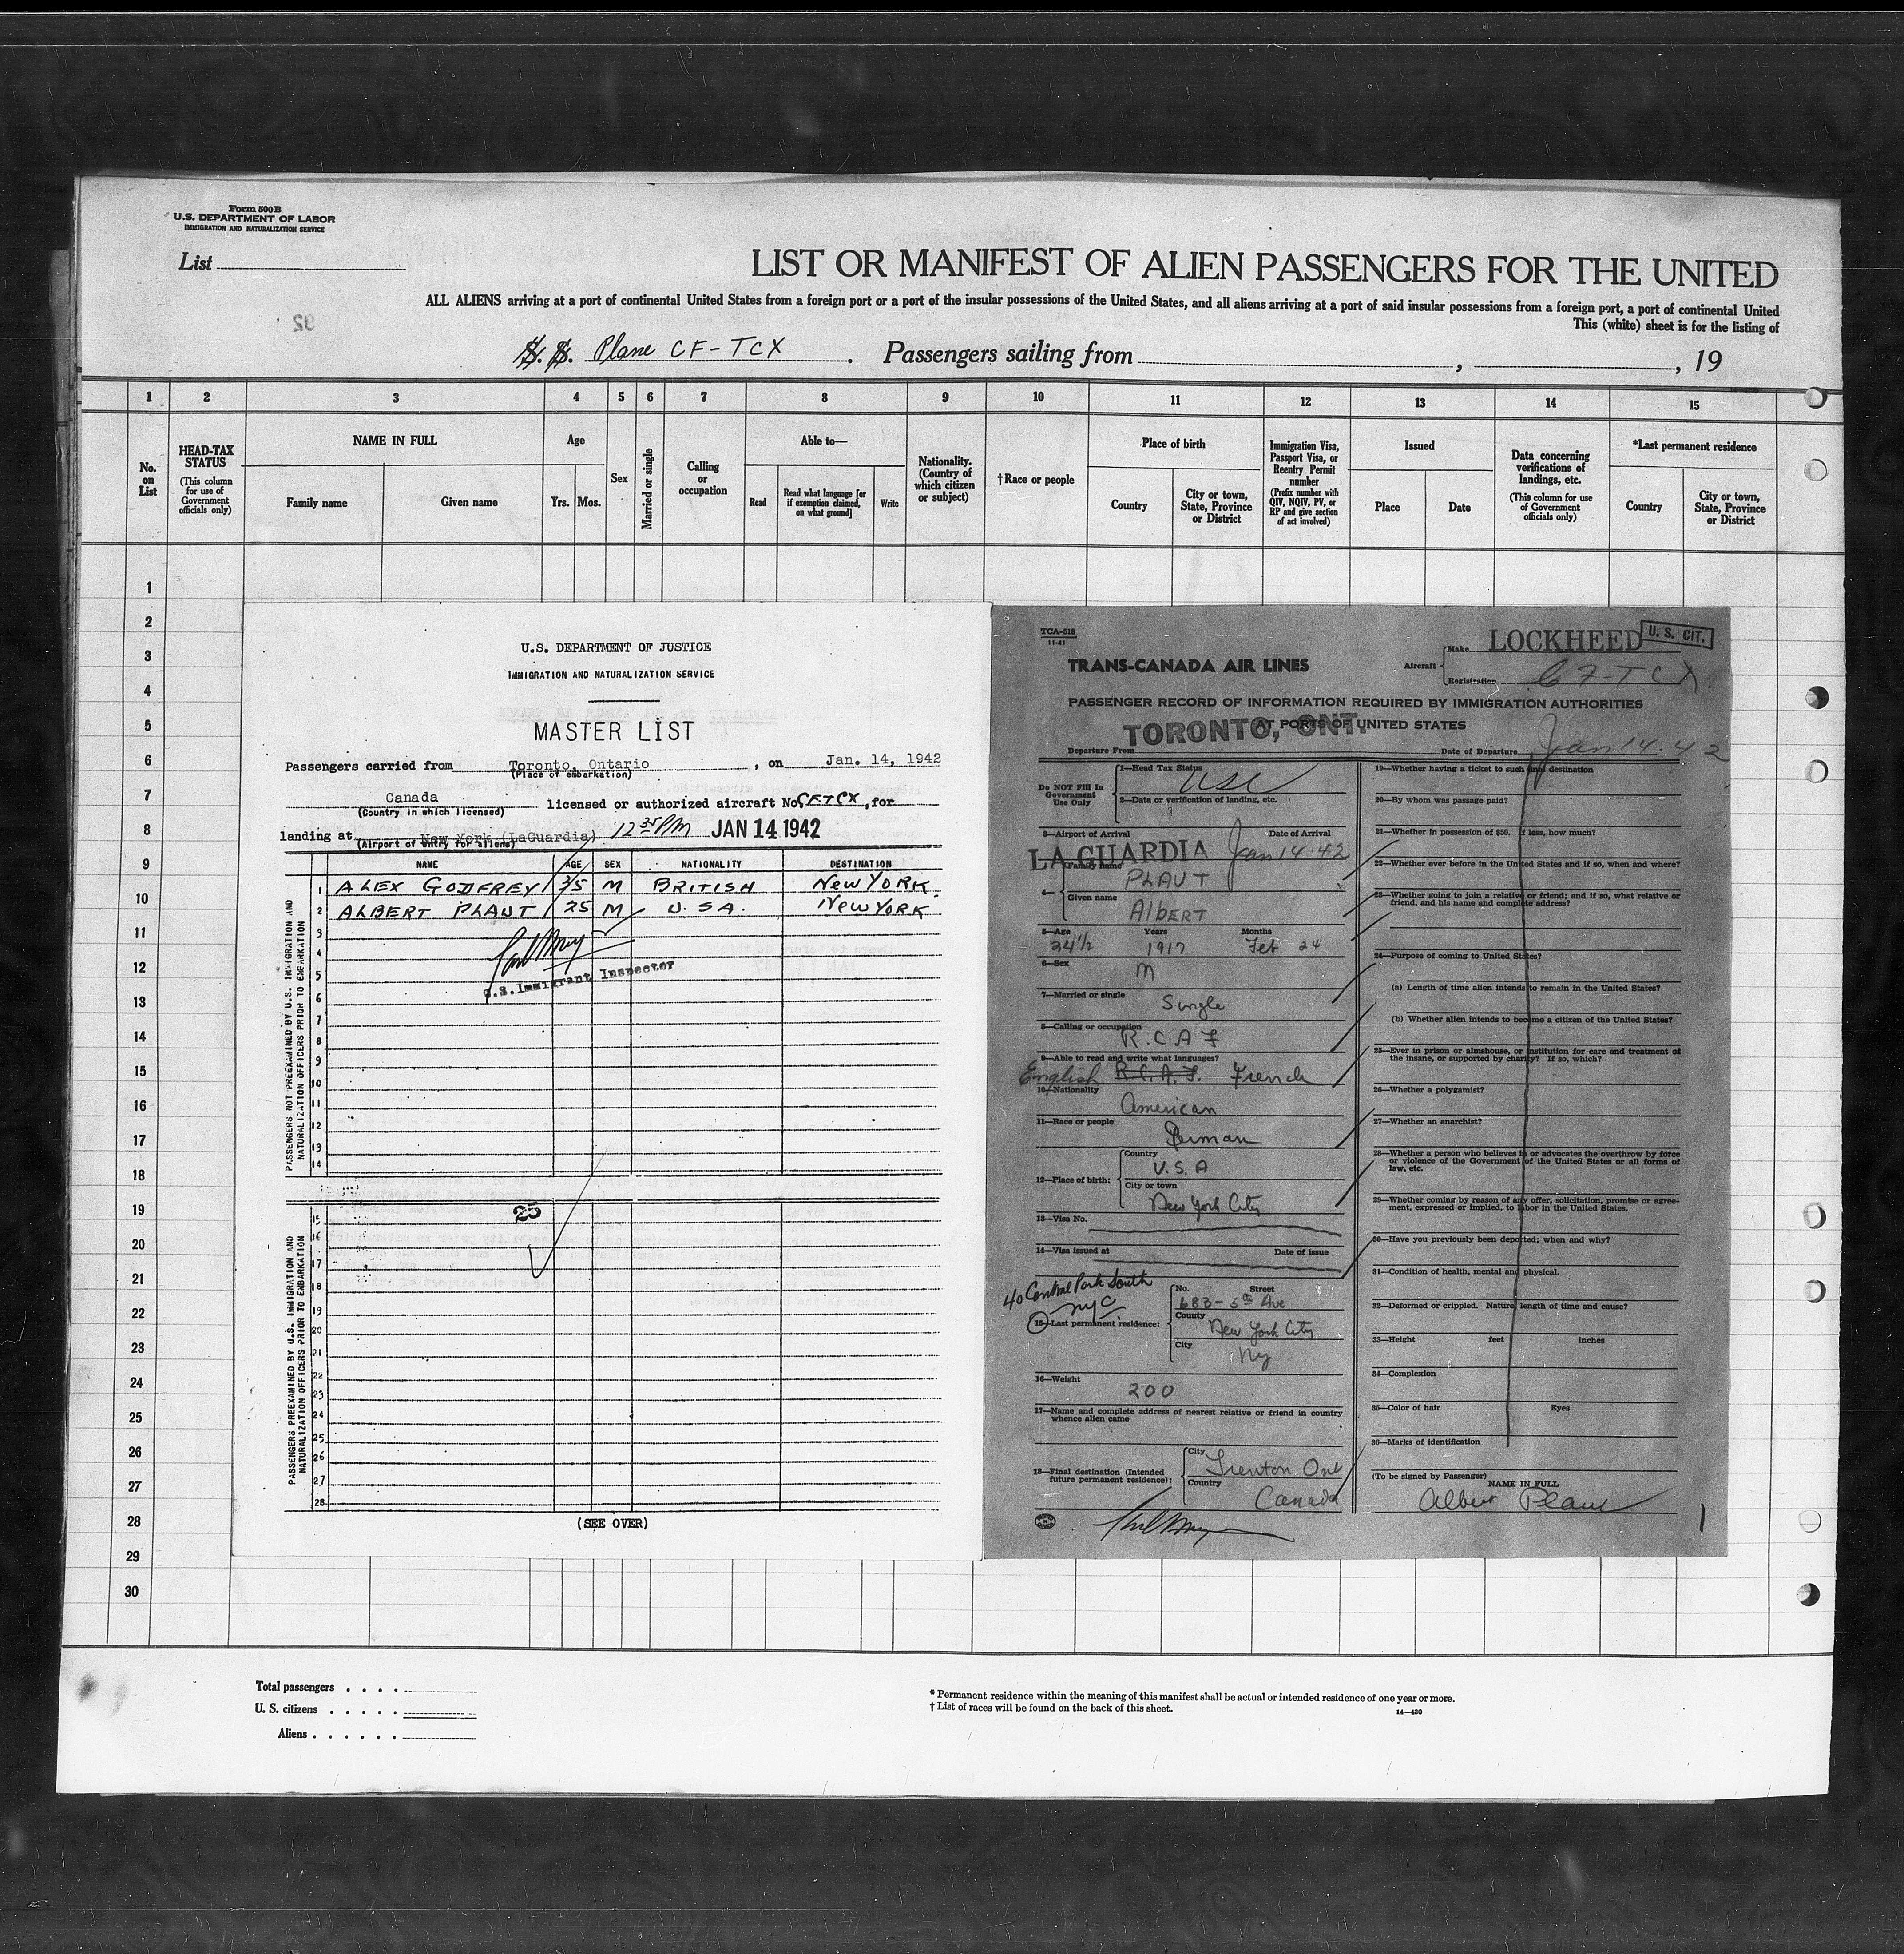 Form 500B
U.S. DEPARTMENT OF LABOR
IMMIGRATION AND NATURALIZATION SERVICE
List
LIST OR MANIFEST OF ALIEN PASSENGERS FOR THE UNITED
ALL ALIENS arriving at a port of continental United States from a foreign port or a port of the insular possessions of the United States, and all aliens arriving at a port of said insular possessions from a foreign port, a port of continental United
This (white) sheet is for the listing of
92
S. S. Plane CF-TCX . Passengers sailing from , , 19
1 2 3 4 5 6 7 8 9 10 11 12 13 14 15
No. on List
HEAD-TAX STATUS (This column for use of Government officials only)
NAME IN FULL
Family name Given name
Age
Yrs. Mos.
Sex
Married or single
Calling or occupation
Able to—
Read Read what language [or if exemption claimed, on what ground] Write
Nationality. (Country of which citizen or subject)
†Race or people
Place of birth
Country City or town, State, Province or District
Immigration Visa, Passport Visa, or Reentry Permit number (Prefix number with QIV, NQIV, PV, or RP and give section of act involved)
Issued
Place Date
Data concerning verifications of landings, etc. (This column for use of Government officials only)
*Last permanent residence
Country City or town, State, Province or District
1
2
3
4
5
6
7
8
9
10
11
12
13
14
15
16
17
18
19
20
21
22
23
24
25
26
27
28
29
30
U.S. DEPARTMENT OF JUSTICE
IMMIGRATION AND NATURALIZATION SERVICE
MASTER LIST
Passengers carried from Toronto, Ontario , on Jan. 14, 1942
(Place of embarkation)
Canada licensed or authorized aircraft No. CFTCX , for
(Country in which licensed)
landing at New York (LaGuardia) 12 35 PM JAN 14 1942
(Airport of entry for aliens)
NAME AGE SEX NATIONALITY DESTINATION
PASSENGERS NOT PREEXAMINED BY U.S. IMMIGRATION AND NATURALIZATION OFFICERS PRIOR TO EMBARKATION
1 ALEX GODFREY 35 M BRITISH NEW YORK
2 ALBERT PLAUT 25 M U.S.A. NEW YORK
3
4
5
U.S. Immigrant Inspector
6
7
8
9
10
11
12
13
14
PASSENGERS PREEXAMINED BY U.S. IMMIGRATION AND NATURALIZATION OFFICERS PRIOR TO EMBARKATION
25
15
16
17
18
19
20
21
22
23
24
25
26
27
28
(SEE OVER)
TCA-518
11-41
TRANS-CANADA AIR LINES
Aircraft
Make LOCKHEED
U. S. CIT.
Registration CF-TCX
PASSENGER RECORD OF INFORMATION REQUIRED BY IMMIGRATION AUTHORITIES
AT PORTS OF UNITED STATES
Departure From TORONTO, ONT.
Date of Departure Jan 14. 42
Do NOT Fill In Government Use Only
1—Head Tax Status USC
2—Data or verification of landing, etc.
3—Airport of Arrival Date of Arrival
LA GUARDIA Jan 14.42
4— Family name PLAUT
Given name Albert
5—Age Years Months
24 1/2 1917 Feb 24
6—Sex M
7—Married or single Single
8—Calling or occupation R.C.A.F
9—Able to read and write what languages?
English R.C.A.F. French
10—Nationality American
11—Race or people German
12—Place of birth: Country U.S.A
City or town New York City
13—Visa No.
14—Visa issued at Date of issue
40 Central Park South
NYC
15—Last permanent residence: No. Street
683- 5th Ave
County New York City
City NY
16—Weight 200
17—Name and complete address of nearest relative or friend in country whence alien came
18—Final destination (Intended future permanent residence): City Trenton Ont
Country Canada
19—Whether having a ticket to such final destination
20—By whom was passage paid?
21—Whether in possession of $50. If less, how much?
22—Whether ever before in the United States and if so, when and where?
23—Whether going to join a relative or friend; and if so, what relative or friend, and his name and complete address?
24—Purpose of coming to United States?
(a) Length of time alien intends to remain in the United States?
(b) Whether alien intends to become a citizen of the United States?
25—Ever in prison or almshouse, or institution for care and treatment of the insane, or supported by charity? If so, which?
26—Whether a polygamist?
27—Whether an anarchist?
28—Whether a person who believes in or advocates the overthrow by force or violence of the Government of the United States or all forms of law, etc.
29—Whether coming by reason of any offer, solicitation, promise or agreement, expressed or implied, to labor in the United States.
30—Have you previously been deported; when and why?
31—Condition of health, mental and physical.
32—Deformed or crippled. Nature, length of time and cause?
33—Height feet inches
34—Complexion
35—Color of hair Eyes
36—Marks of identification
(To be signed by Passenger)
NAME IN FULL
Albert Plaut
1
Total passengers . . . .
U. S. citizens . . . . .
Aliens . . . . . .
* Permanent residence within the meaning of this manifest shall be actual or intended residence of one year or more.
† List of races will be found on the back of this sheet.
14—430